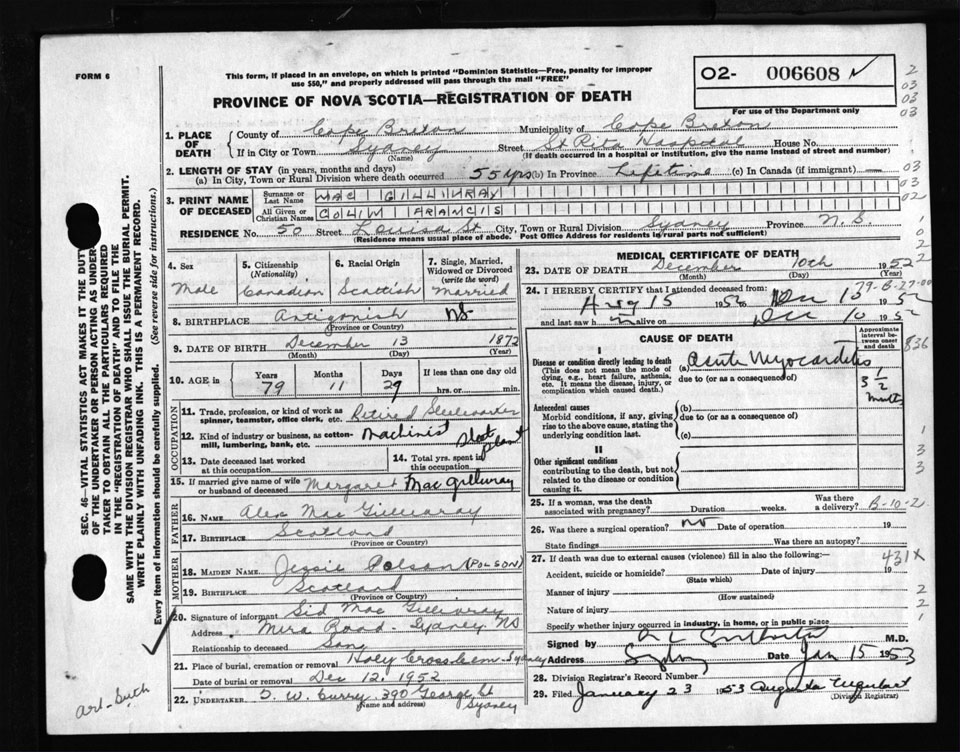 FORM 6
This form, if placed in an envelope, on which is printed "Dominion Statistics—Free, penalty for improper
use $50," and properly addressed will pass through the mail "FREE"
PROVINCE OF NOVA SCOTIA—REGISTRATION OF DEATH
02- 006608
For use of the Department only
2
03
03
03
1. PLACE OF DEATH County of Cape Breton Municipality of Cape Breton
If in City or Town Sydney Street St Rita Hospital House No.
(Name) (If death occurred in a hospital or institution, give the name instead of street and number)
2. LENGTH OF STAY (in years, months and days)
(a) In City, Town or Rural Division where death occurred 55 yrs (b) In Province Lifetime (c) In Canada (if immigrant) —
03
03
02
3. PRINT NAME OF DECEASED Surname or Last Name MAC GILLIVRAY
All Given or Christian Names COLIM FRANCIS
RESIDENCE No. 50 Street Louisa St City, Town or Rural Division Sydney Province N.S.
(Residence means usual place of abode. Post Office Address for residents in rural parts not sufficient)
4. Sex 5. Citizenship (Nationality) 6. Racial Origin 7. Single, Married, Widowed or Divorced (write the word)
Male Canadian Scottish Married
8. BIRTHPLACE Antigonish NS
(Province or Country)
9. DATE OF BIRTH December 13 1872
(Month) (Day) (Year)
10. AGE in Years Months Days If less than one day old
79 11 29 hrs. or min.
OCCUPATION
11. Trade, profession, or kind of work as spinner, teamster, office clerk, etc. Retired Steelworker
12. Kind of industry or business, as cotton-mill, lumbering, bank, etc. Machinist Plant
13. Date deceased last worked at this occupation
14. Total yrs. spent in this occupation
15. If married give name of wife or husband of deceased Margaret MacGillivray
FATHER
16. NAME Alex Mac Gillivray
17. BIRTHPLACE Scotland
(Province or Country)
MOTHER
18. MAIDEN NAME Jessie Polson (POLSON)
19. BIRTHPLACE Scotland
(Province or Country)
20. Signature of informant Sid Mac Gillivray
Address Mira Road - Sydney NS
Relationship to deceased Son
21. Place of burial, cremation or removal Holy Cross Cem Sydney
Date of burial or removal Dec 12, 1952
22. UNDERTAKER T. W. Curry 390 George St
(Name and address) Sydney
MEDICAL CERTIFICATE OF DEATH
23. DATE OF DEATH December 10th 1952
(Month) (Day) (Year)
24. I HEREBY CERTIFY that I attended deceased from:
Aug 15 1952 to Dec 10 1952
and last saw h im alive on Dec 10 1952
CAUSE OF DEATH
Approximate interval between onset and death
836
I
Disease or condition directly leading to death
(This does not mean the mode of dying, e.g., heart failure, asthenia, etc. It means the disease, injury, or complication which caused death.)
(a) Acute Myocarditis
due to (or as a consequence of)
3 1/2 months
Antecedent causes
Morbid conditions, if any, giving rise to the above cause, stating the underlying condition last.
(b)
due to (or as a consequence of)
(c)
1
3
3
II
Other significant conditions
contributing to the death, but not related to the disease or condition causing it.
25. If a woman, was the death associated with pregnancy? Duration weeks. Was there a delivery? B-10-2
26. Was there a surgical operation? no Date of operation 19
State findings Was there an autopsy?
27. If death was due to external causes (violence) fill in also the following:— 431X
Accident, suicide or homicide? Date of injury 19
(State which)
Manner of injury 2
(How sustained)
Nature of injury 2
Specify whether injury occurred in industry, in home, or in public place 1
Signed by M.D.
Address Sydney Date Jan 15 1953
28. Division Registrar's Record Number
29. Filed January 23 1953 Augusta Urquhart
(Division Registrar)
SEC. 46—VITAL STATISTICS ACT MAKES IT THE DUTY
OF THE UNDERTAKER OR PERSON ACTING AS UNDER-
TAKER TO OBTAIN ALL THE PARTICULARS REQUIRED
IN THE "REGISTRATION OF DEATH" AND TO FILE THE
SAME WITH THE DIVISION REGISTRAR WHO SHALL ISSUE THE BURIAL PERMIT.
WRITE PLAINLY WITH UNFADING INK. THIS IS A PERMANENT RECORD.
Every item of information should be carefully supplied. (See reverse side for instructions.)